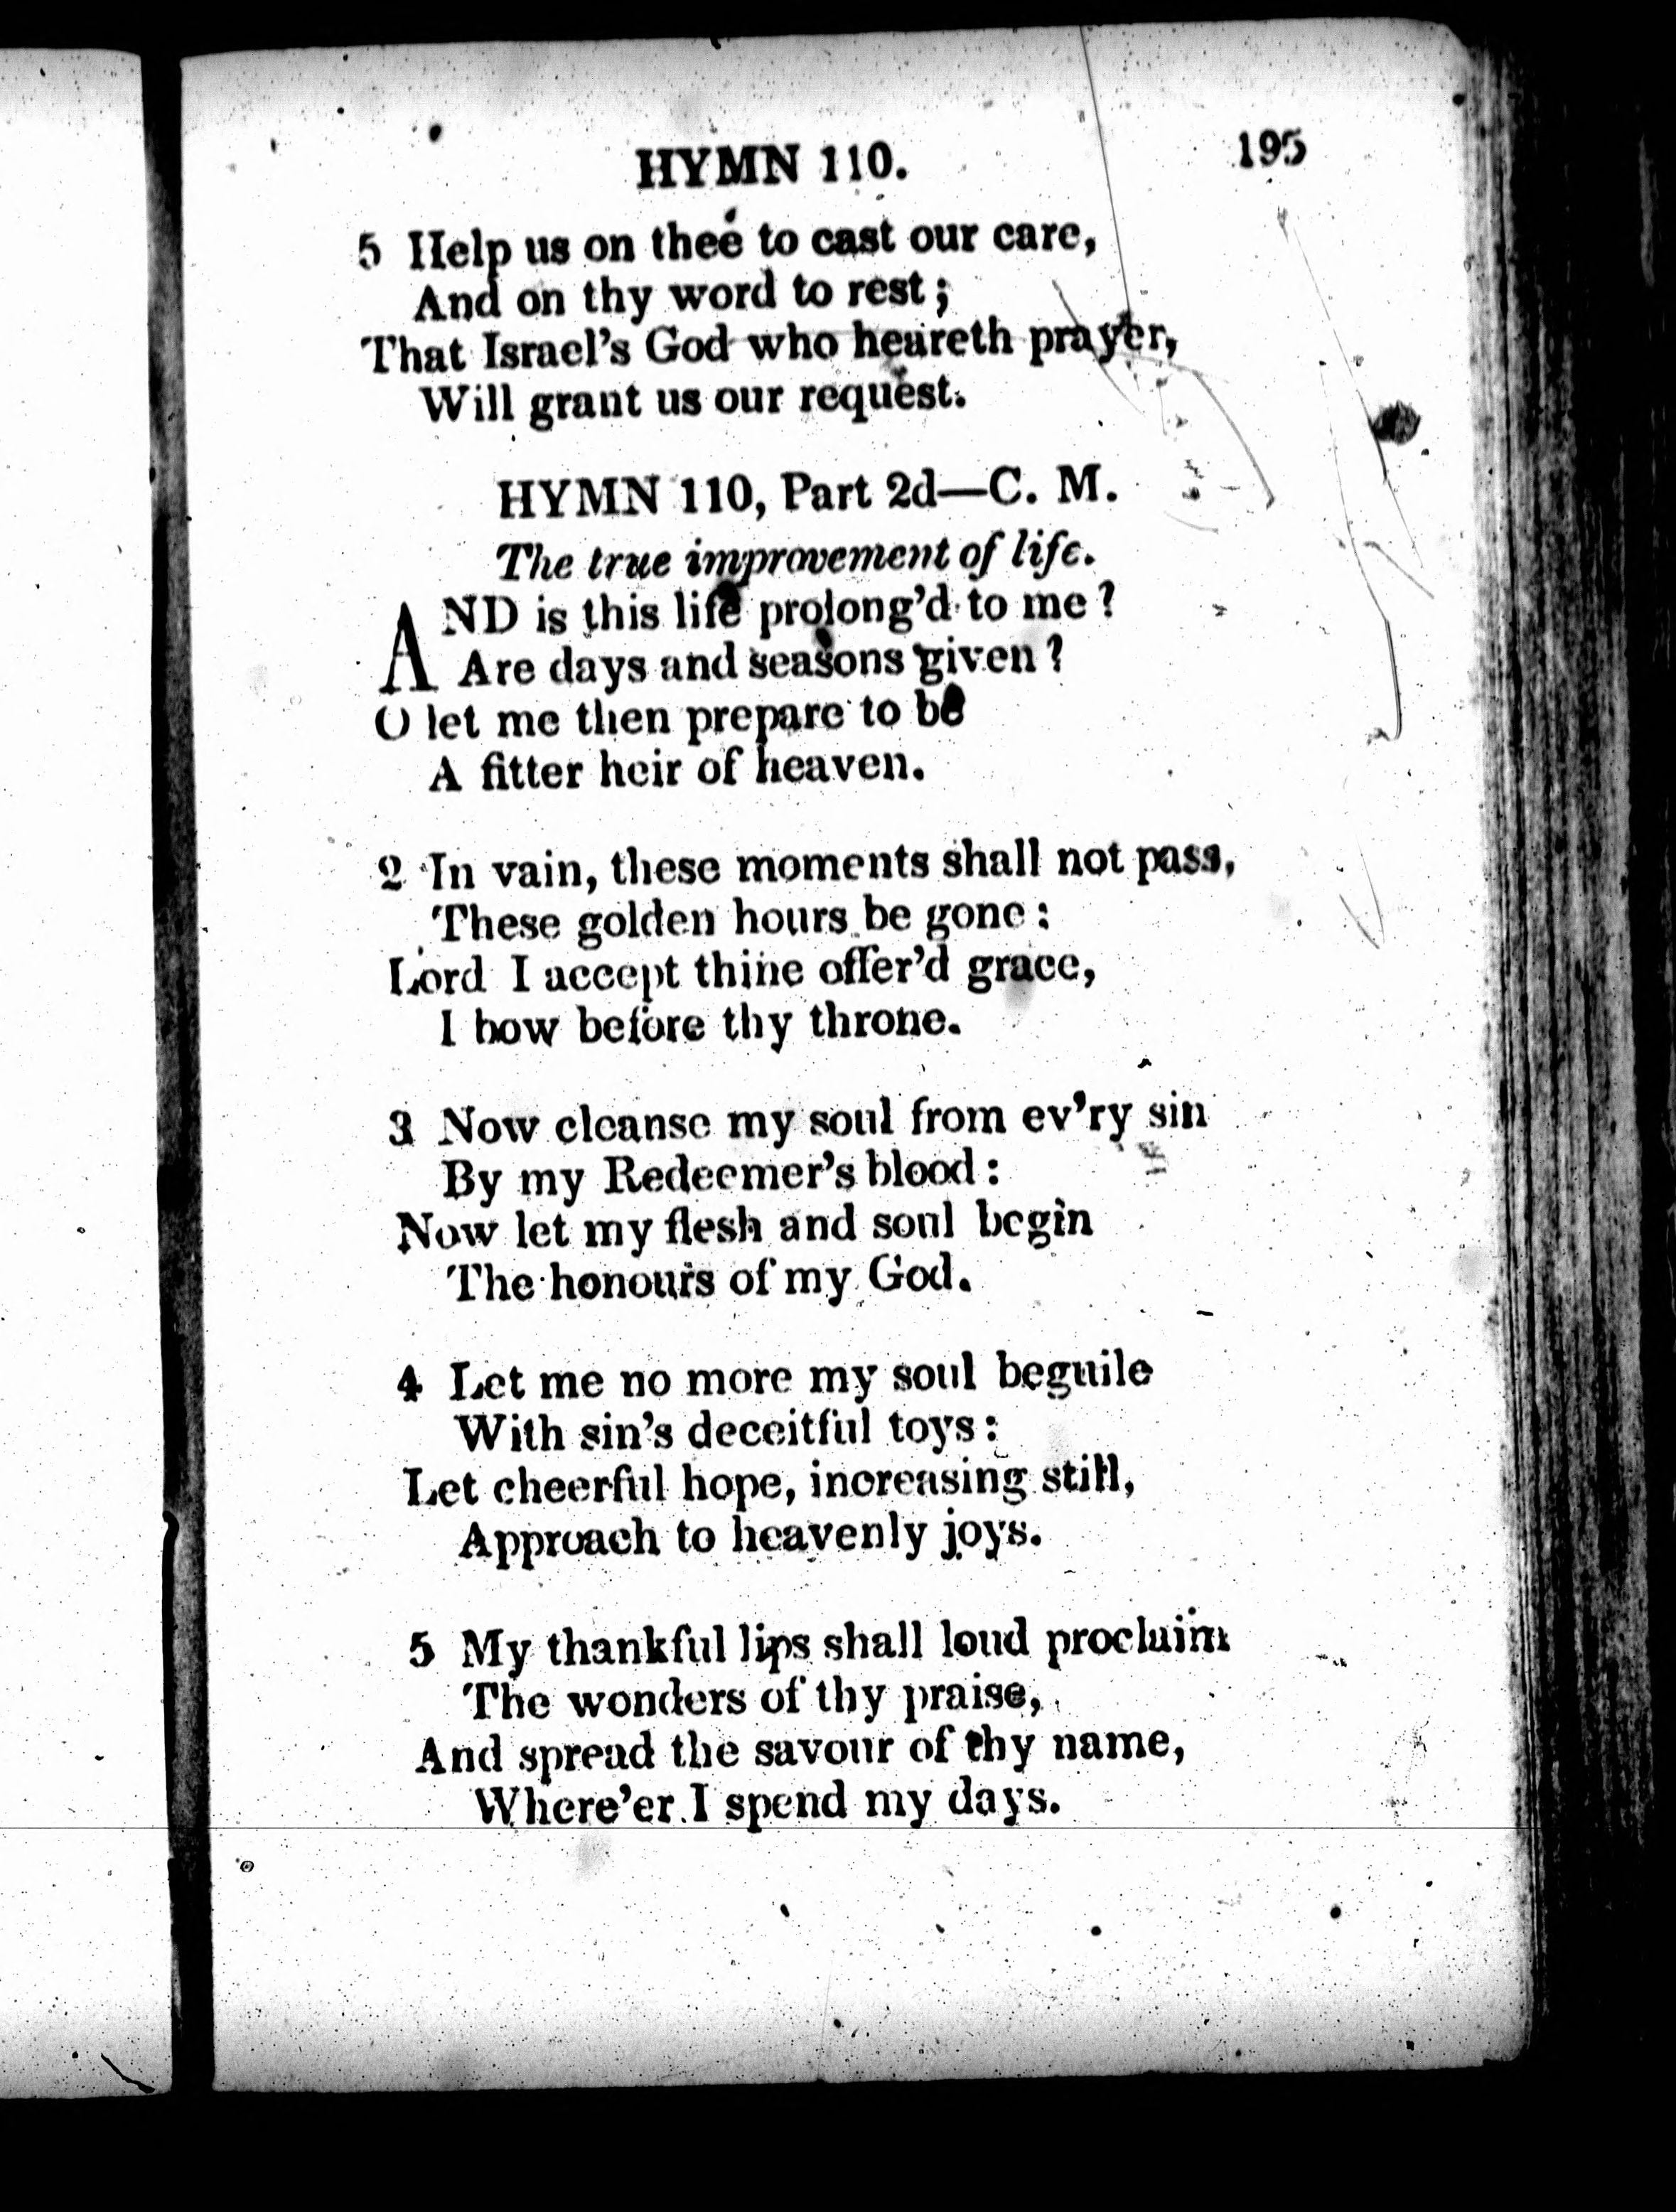 HYMN 110. 195
5 Help us on thee to cast our care,
And on thy word to rest;
That Israel's God who heareth prayer,
Will grant us our request.
HYMN 110, Part 2d—C. M.
The true improvement of life.
AND is this life prolong'd to me?
Are days and seasons given?
O let me then prepare to be
A fitter heir of heaven.
2 In vain, these moments shall not pass,
These golden hours be gone:
Lord I accept thine offer'd grace,
I bow before thy throne.
3 Now cleanse my soul from ev'ry sin
By my Redeemer's blood:
Now let my flesh and soul begin
The honours of my God.
4 Let me no more my soul beguile
With sin's deceitful toys:
Let cheerful hope, increasing still,
Approach to heavenly joys.
5 My thankful lips shall loud proclaim
The wonders of thy praise,
And spread the savour of thy name,
Where'er I spend my days.